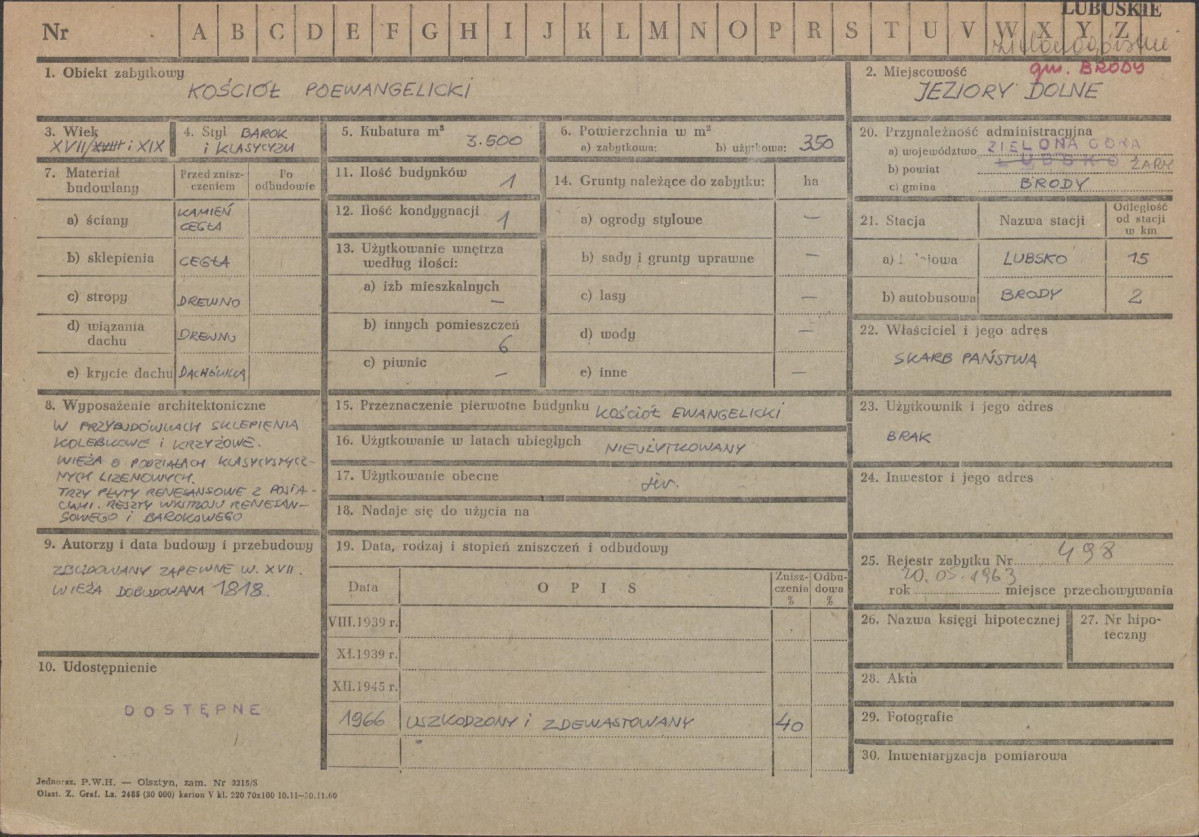 LUBUSKIE
Nr A B C D E F G H I J K L M N O P R S T U V W X Y Z
zielonogórskie
gm. BRODY
1. Obiekt zabytkowy
KOŚCIÓŁ POEWANGELICKI
2. Miejscowość
JEZIORY DOLNE
3. Wiek
XVII/XVIII i XIX
4. Styl BAROK
i KLASYCYZM
5. Kubatura m³
3.500
6. Powierzchnia w m²
a) zabytkowa: b) użytkowa: 350
7. Materiał budowlany
Przed zniszczeniem
Po odbudowie
a) ściany KAMIEŃ CEGŁA
b) sklepienia CEGŁA
c) stropy DREWNO
d) wiązania dachu DREWNO
e) krycie dachu DACHÓWKA
8. Wyposażenie architektoniczne
W PRZYBUDÓWKACH SKLEPIENIA
KOLEBKOWE i KRZYŻOWE.
WIEŻA O PODZIAŁACH KLASYCYSTYCZ-
NYCH LIZENOWYCH.
TRZY PŁYTY RENESANSOWE Z POSTA-
CIAMI. RESZTY WYSTROJU RENESAN-
SOWEGO i BAROKOWEGO
9. Autorzy i data budowy i przebudowy
ZBUDOWANY ZAPEWNE W. XVII.
WIEŻA DOBUDOWANA 1818.
10. Udostępnienie
DOSTĘPNE
11. Ilość budynków 1
12. Ilość kondygnacji 1
13. Użytkowanie wnętrza
według ilości:
a) izb mieszkalnych –
b) innych pomieszczeń 6
c) piwnic –
14. Grunty należące do zabytku: ha
a) ogrody stylowe –
b) sady i grunty uprawne –
c) lasy –
d) wody –
e) inne –
15. Przeznaczenie pierwotne budynku KOŚCIÓŁ EWANGELICKI
16. Użytkowanie w latach ubiegłych NIEUŻYTKOWANY
17. Użytkowanie obecne jw.
18. Nadaje się do użycia na
19. Data, rodzaj i stopień zniszczeń i odbudowy
Data OPIS Zniszczenia % Odbudowa %
VIII.1939 r.
XI.1939 r.
XII.1945 r.
1966 USZKODZONY i ZDEWASTOWANY 40
20. Przynależność administracyjna
a) województwo ZIELONA GÓRA
b) powiat LUBSKO ŻARY
c) gmina BRODY
21. Stacja Nazwa stacji Odległość od stacji w km
LUBSKO 15
b) autobusowa BRODY 2
22. Właściciel i jego adres
SKARB PAŃSTWA
23. Użytkownik i jego adres
BRAK
24. Inwestor i jego adres
25. Rejestr zabytku Nr 498
20.05.1963
rok miejsce przechowywania
26. Nazwa księgi hipotecznej
27. Nr hipoteczny
28. Akta
29. Fotografie
30. Inwentaryzacja pomiarowa
Jednoraz. P.W.H. — Olsztyn, zam. Nr 3215/S
Olszt. Z. Graf. Lz. 2485 (30 000) karton V kl. 220 70x100 10.11—30.11.60